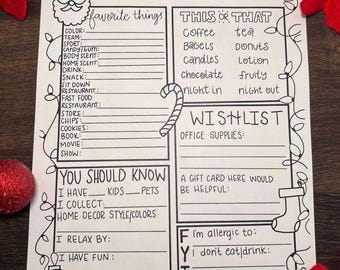 favorite things
COLOR:
TEAM:
SPORT:
CANDY/GUM:
BODY SCENT:
HOME SCENT:
DRINK:
SNACK:
SIT DOWN
RESTAURANT:
FAST FOOD
RESTAURANT:
STORE:
CHIPS:
COOKIES:
BOOK:
MOVIE:
SHOW:
THIS OR THAT
Coffee tea
Bagels Donuts
candles Lotion
chocolate fruity
night in night out
WISHLIST
OFFICE SUPPLIES:
A GIFT CARD HERE WOULD
BE HELPFUL:
YOU SHOULD KNOW
I HAVE ___ KIDS ___ PETS
I COLLECT
HOME DECOR STYLE/COLORS
I RELAX BY:
I HAVE FUN:
FYI
I'm allergic to:
I don't eat/drink: